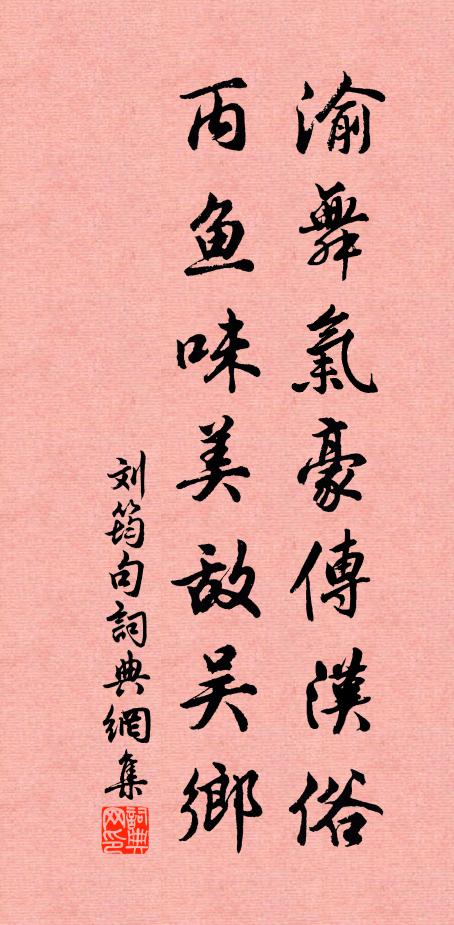 渝舞氣豪傳漢俗
丙鱼味美敌吴鄉
刘筠句詞典網集
詞典网印